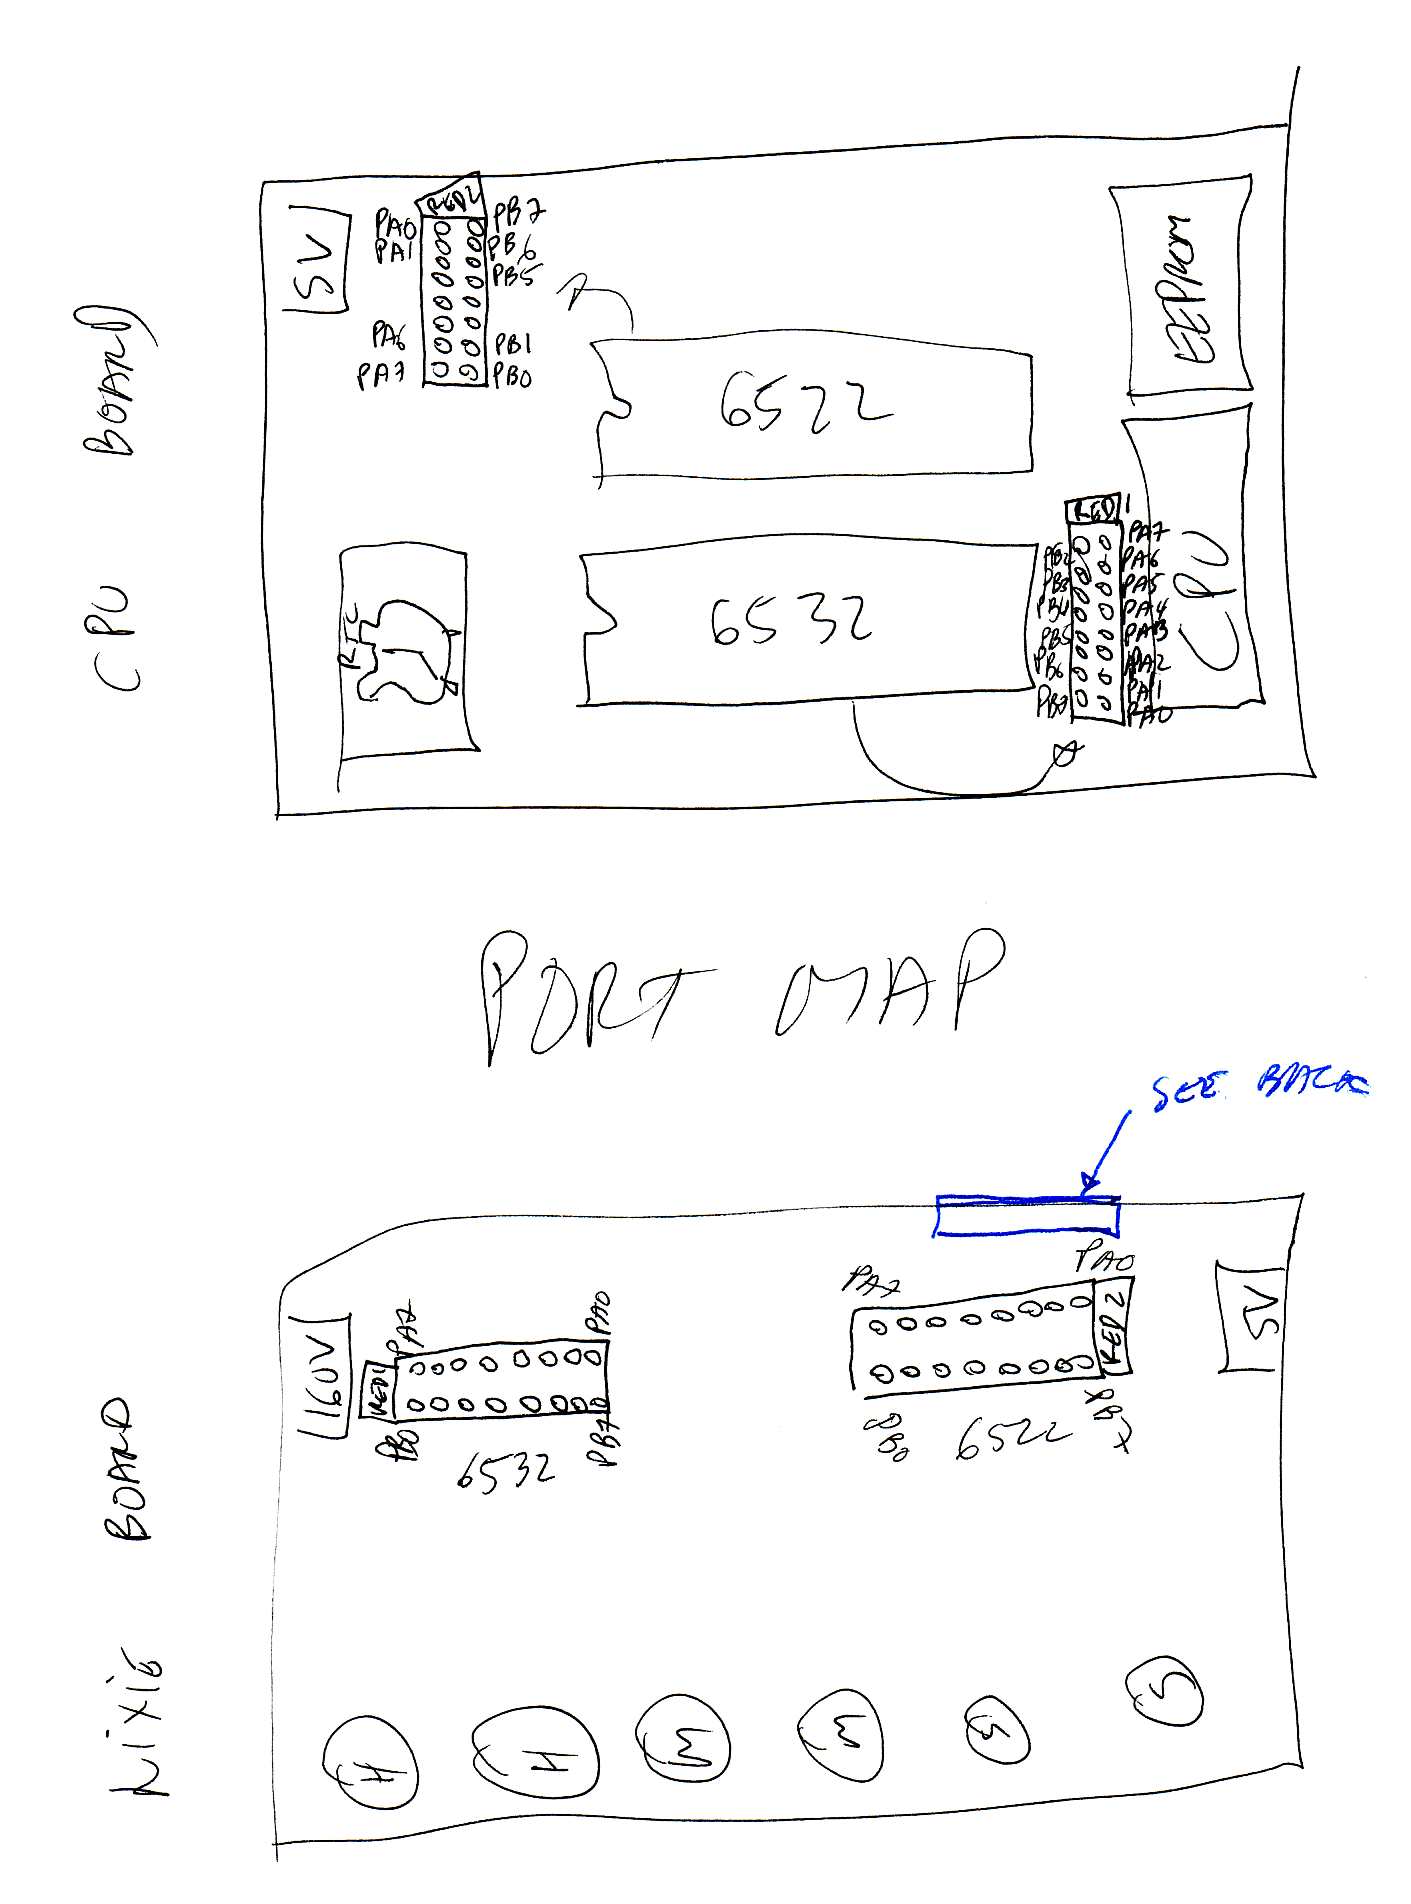 CPU BOARD
5V
RED 2
PA0
PA1
PA6
PA7
PB7
PB6
PB5
PB1
PB0
6522
EEPROM
RTC
6532
RED 1
PB2
PB3
PB4
PB5
PB6
PB7
PA7
PA6
PA5
PA4
PA3
PA2
PA1
PA0
CPU
PORT MAP
SEE BACK
NIXIE BOARD
160V
RED 1
PA7
PA0
PB0
PB7
6532
PA7
PA0
RED 2
PB0
PB7
6522
5V
H
H
M
M
S
S